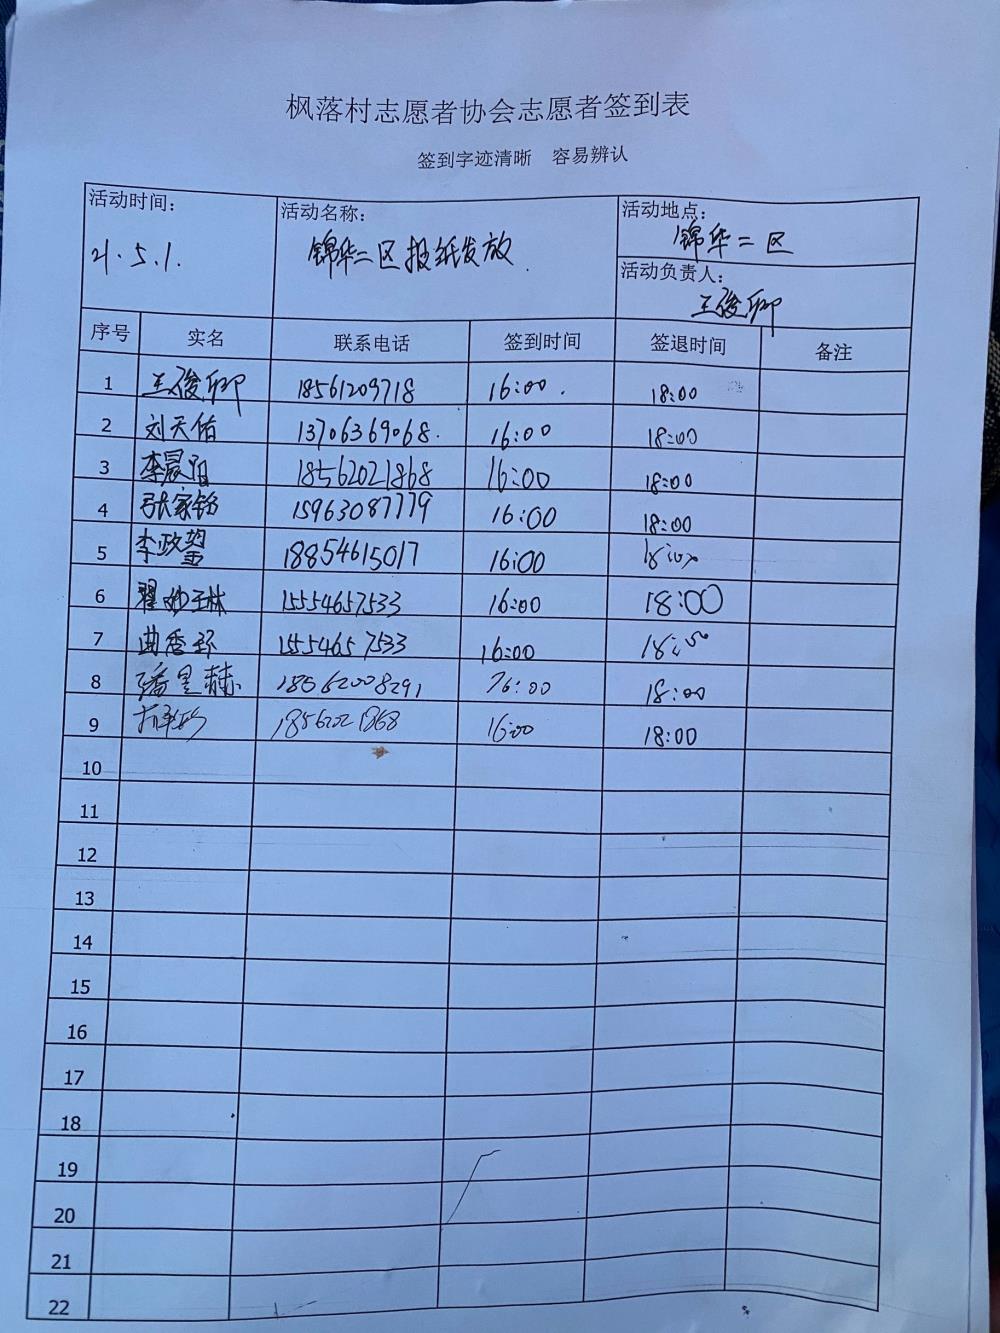 枫落村志愿者协会志愿者签到表
签到字迹清晰 容易辨认
活动时间： 21.5.1.
活动名称： 锦华二区报纸发放.
活动地点： 锦华二区
活动负责人： 王俊卿
序号 实名 联系电话 签到时间 签退时间 备注
1 王俊卿 18561209718 16:00. 18:00
2 刘天佑 13706369068. 16:00 18:00
3 李晨阳 18562021868 16:00 18:00
4 张家铭 15963087779 16:00 18:00
5 李政 18854615017 16:00 18:00
6 翟妙琳 15554657533 16:00 18:00
7 曲香环 15554657533 16:00 18:00
8 潘昱赫 18562008291 16:00 18:00
9 18562021868 16:00 18:00
10
11
12
13
14
15
16
17
18
19
20
21
22